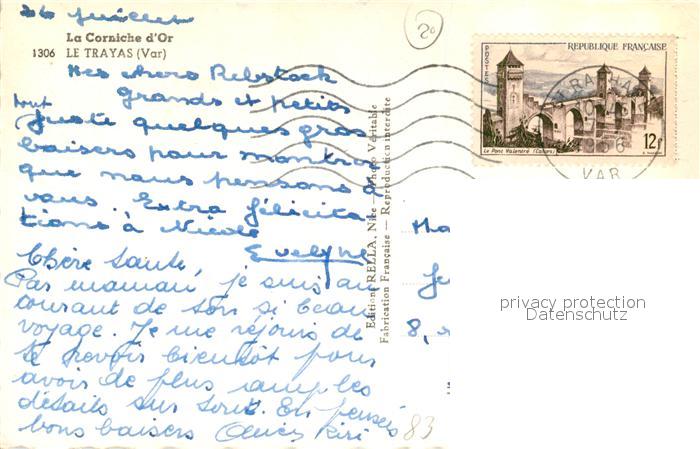 26 Juillet
La Corniche d'Or
1306 LE TRAYAS (Var)
Mes chers Rebstock
grands et petits
tout
Juste quelques gros
baisers pour montrer
que nous pensons à
vous. Extra félicita-
tions à Nicole
Evelyne
Chère tante,
Par maman, je suis au
courant de son si beau
voyage. Je me réjouis de
te revoir bientôt pour
avoir de plus amples
détails sur tout. En pensée
bons baisers
Editions RELLA, Nice — Photo Véritable
Fabrication Française — Reproduction interdite
20
POSTES
REPUBLIQUE FRANÇAISE
12F
Le Pont Valentré (Cahors)
1956
VAR
8,
privacy protection
Datenschutz
83